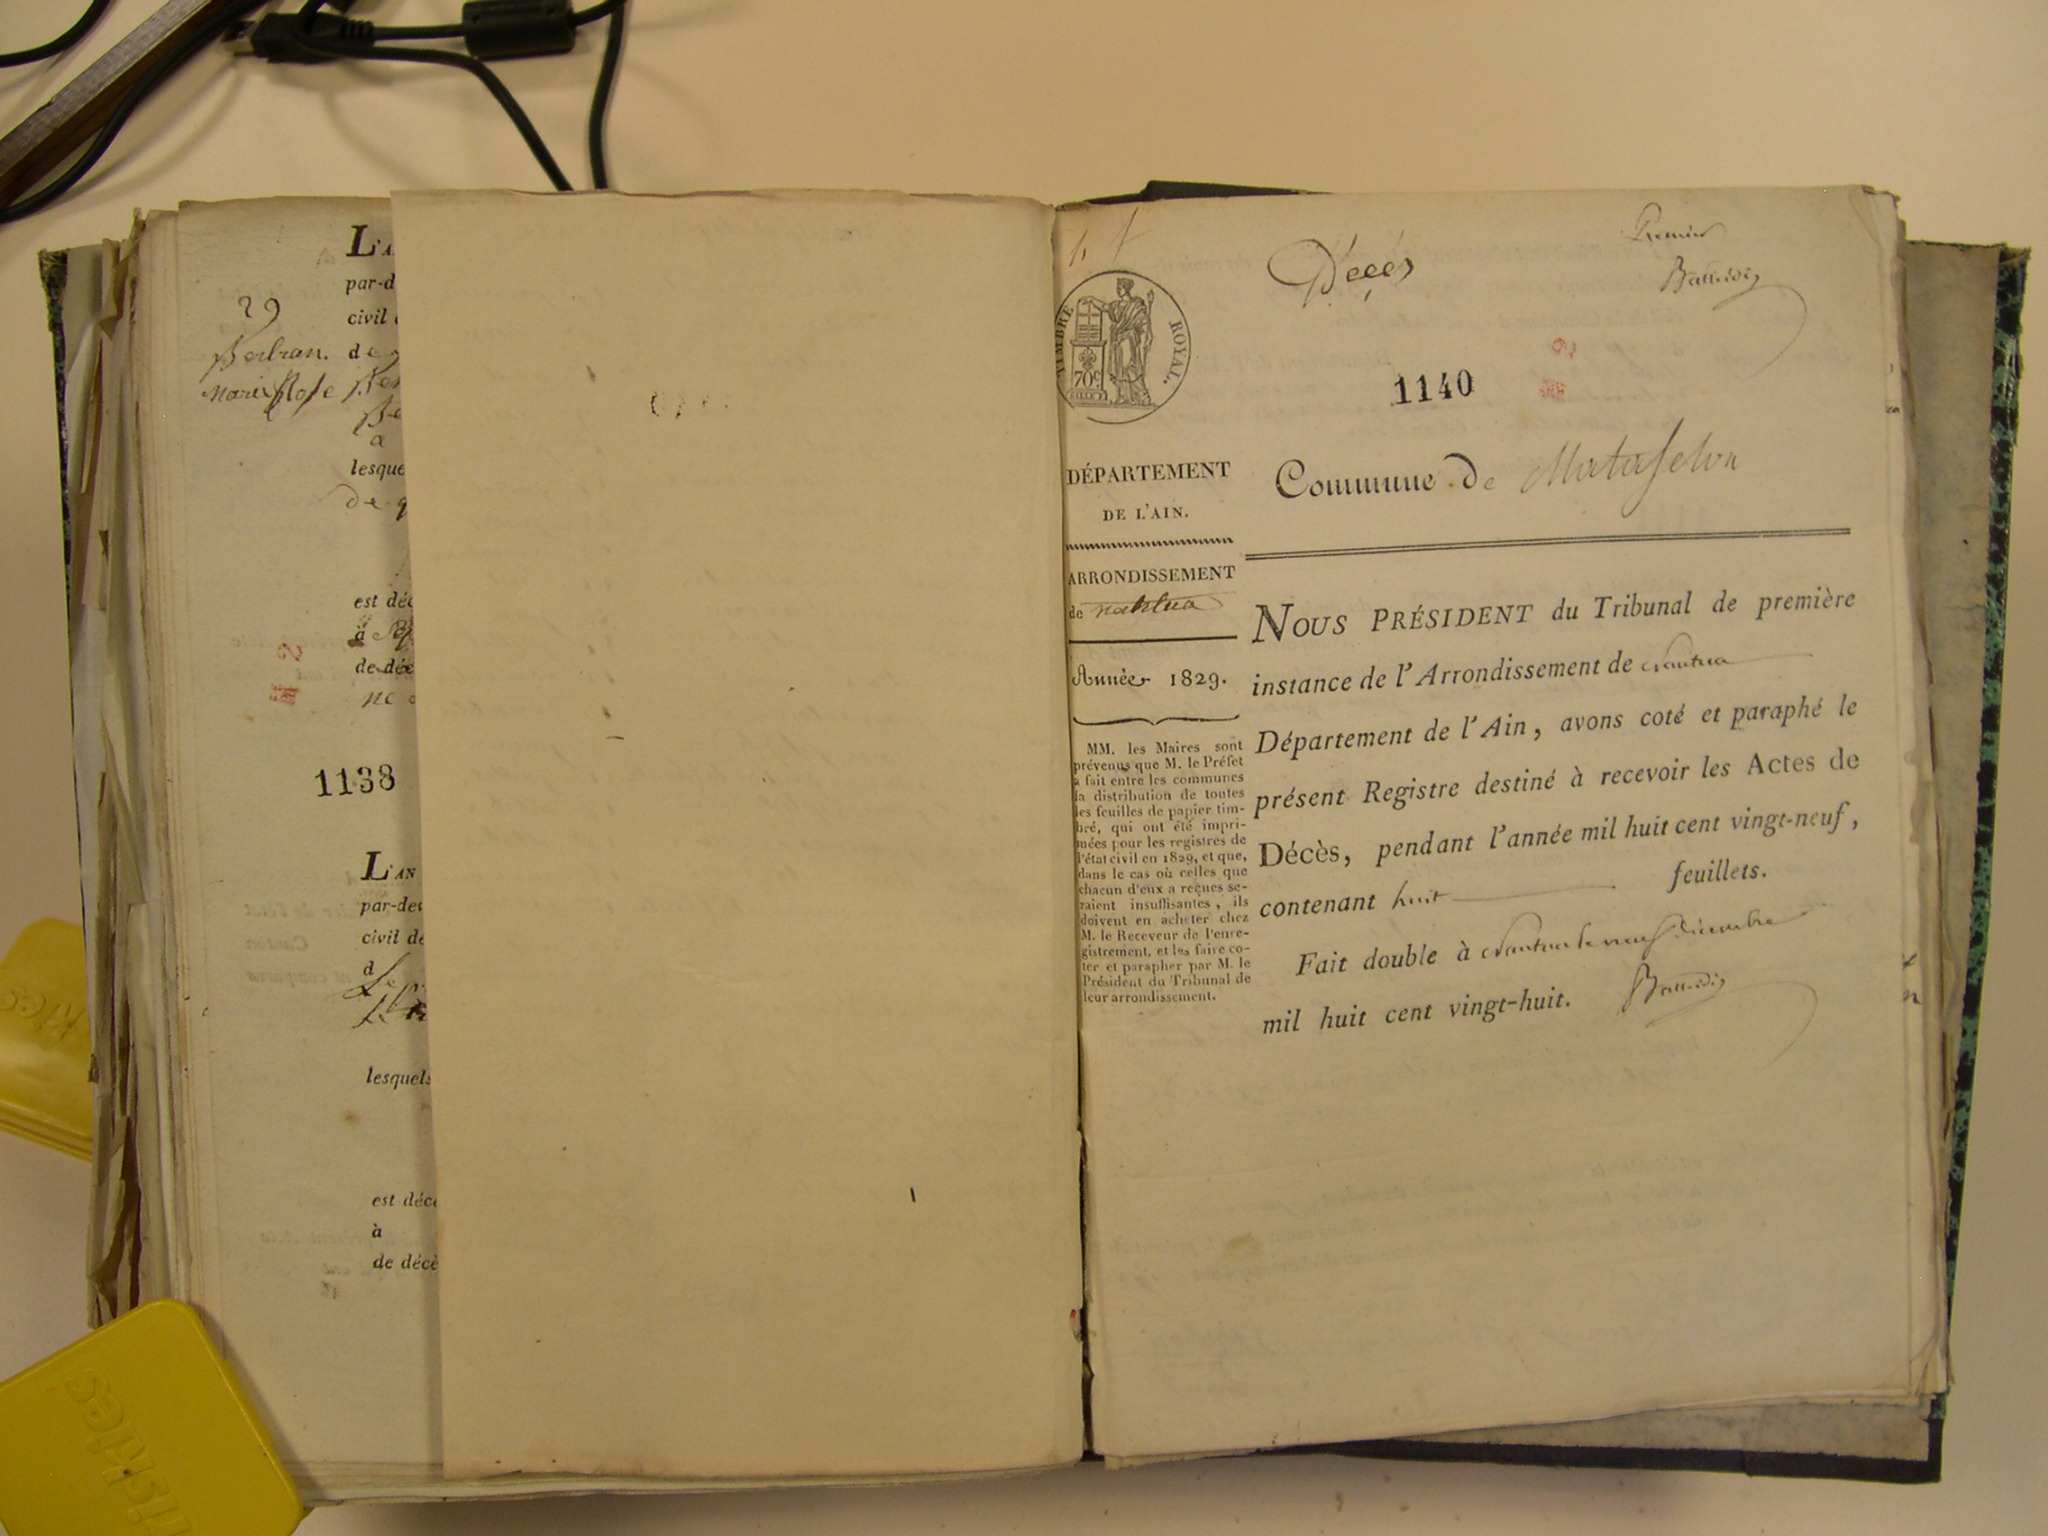 29
Bertran.
Marie Rose
L'A
par-d
civil
de
a
lesque
de q
est déc
à
de déc
ne
1138
L'AN
par-dev
civil de
d
lesquels
est déce
à
de décè
Décès
Premier
TIMBRE ROYAL.
70c
1140
DÉPARTEMENT
DE L'AIN.
Commune de Matafelon
ARRONDISSEMENT
de nantua
Année 1829.
MM. les Maires sont
prévenus que M. le Préfet
a fait entre les communes
la distribution de toutes
les feuilles de papier tim-
bré, qui ont été impri-
mées pour les registres de
l'état civil en 1829, et que,
dans le cas où celles que
chacun d'eux a reçues se-
raient insuffisantes, ils
doivent en acheter chez
M. le Receveur de l'enre-
gistrement, et les faire co-
ter et parapher par M. le
Président du Tribunal de
leur arrondissement.
NOUS PRÉSIDENT du Tribunal de première
instance de l'Arrondissement de Nantua
Département de l'Ain, avons coté et paraphé le
présent Registre destiné à recevoir les Actes de
Décès, pendant l'année mil huit cent vingt-neuf,
contenant huit feuillets.
Fait double à Nantua le neuf décembre
mil huit cent vingt-huit.